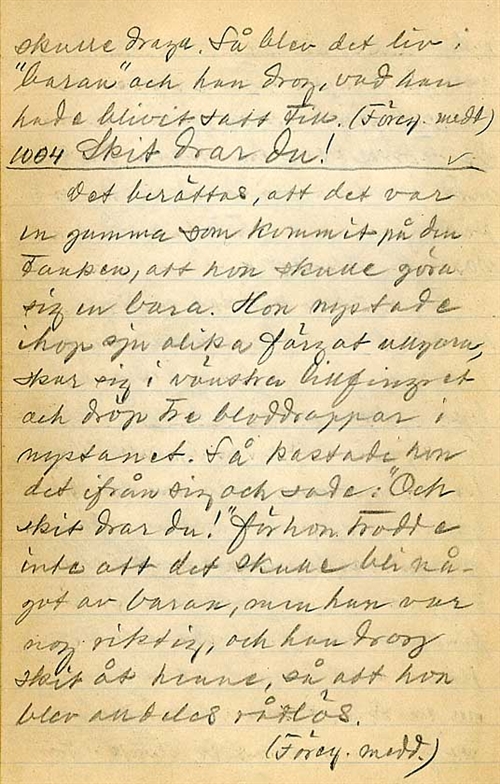 skulle draga. Så blev det liv i
"baran" och han drog, vad han
hade blivit satt till. (Förey. medd)
1004 Skit drar du!
Det berättas, att det var
en gumma som kommit på den
tanken, att hon skulle göra
sig en bara. Hon nystade
ihop sju olika färgat ullgarn,
skar sig i vänstra lillfingret
och dröp tre bloddroppar i
nystanet. Så kastade hon
det ifrån sig och sade: "Och
skit drar du!" för hon trodde
inte att det skulle bli nå-
got av baran, men han var
nog riktig, och han drog
skit åt henne, så att hon
blev alldeles rådlös.
(Förey. medd.)